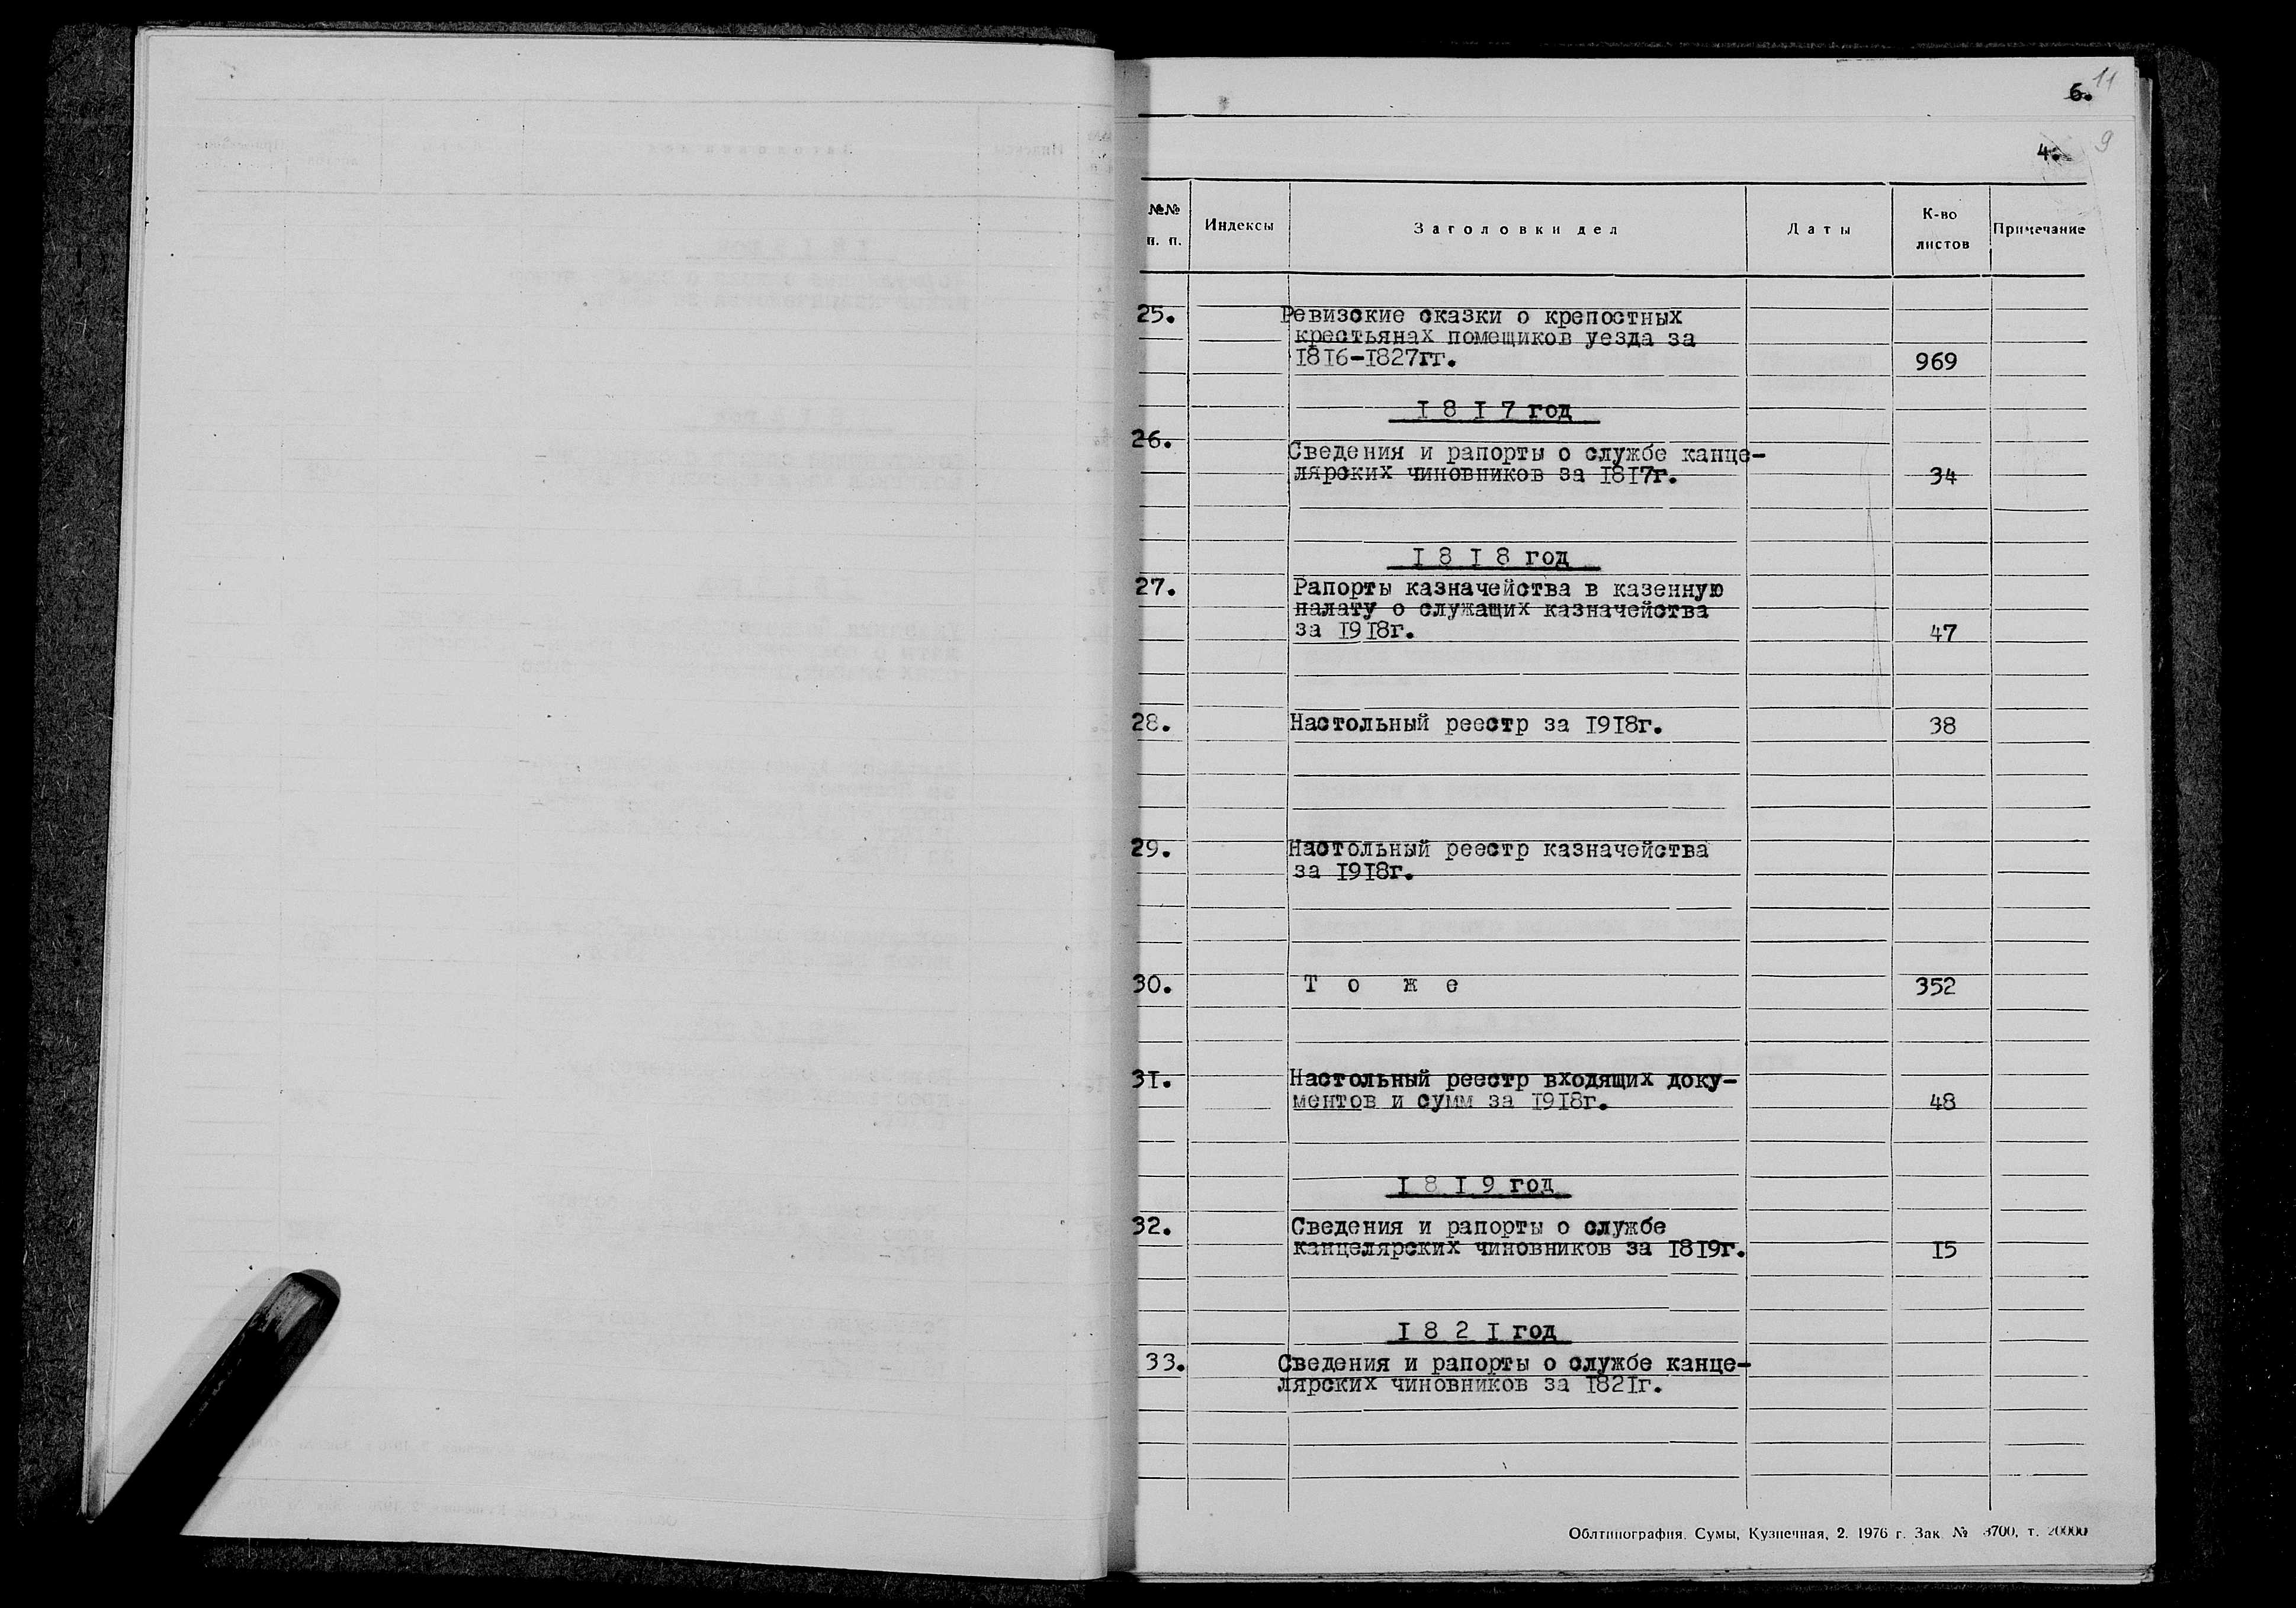 11
6.
4.
9
№№ п. п.
Индексы
Заголовки дел
Даты
К-во листов
Примечание
25. Ревизские сказки о крепостных
крестьянах помещиков уезда за
1816-1827гг. 969
1 8 1 7 год
26.
Сведения и рапорты о службе канце-
лярских чиновников за 1817г. 34
1 8 1 8 год
27. Рапорты казначейства в казенную
палату о служащих казначейства
за 1918г. 47
28. Настольный реестр за 1918г. 38
29. Настольный реестр казначейства
за 1918г.
30. Т о ж е 352
31. Настольный реестр входящих доку-
ментов и сумм за 1918г. 48
1 8 1 9 год
32. Сведения и рапорты о службе
канцелярских чиновников за 1819г. 15
1 8 2 1 год
33. Сведения и рапорты о службе канце-
лярских чиновников за 1821г.
Облтипография. Сумы, Кузнечная, 2. 1976 г. Зак. № 3700, т. 20000